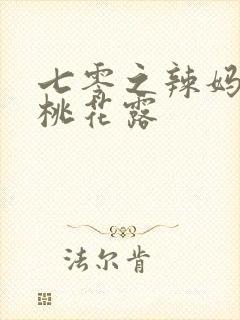 七零之辣妈
桃花露
法尔肯